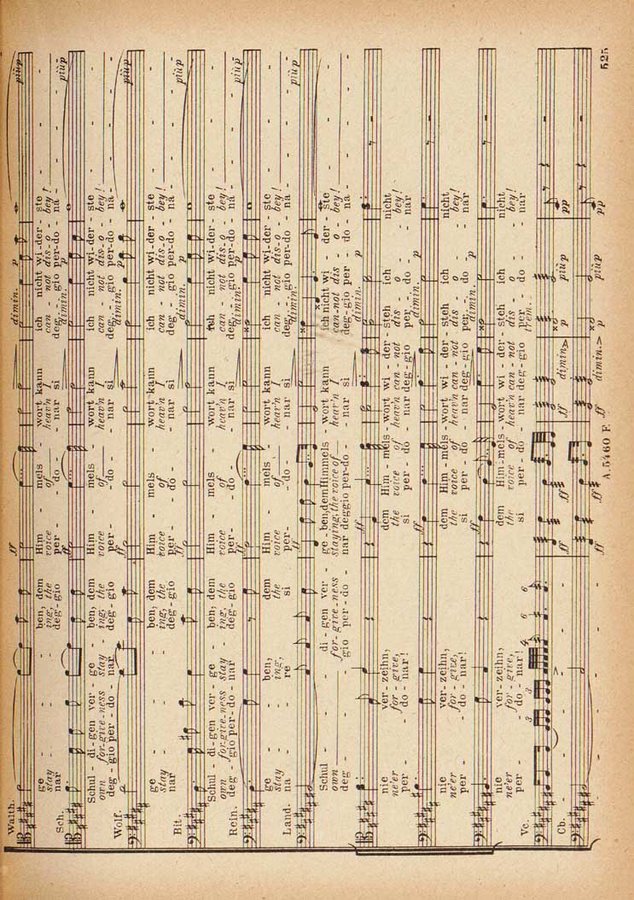 Walth.
ge - - - - ben, dem Him - - mels - wort kann ich nicht wi-der - ste - - -
stay - - - - ing, the voice of heav'n I can not dis-o - bey! - - -
nar deg-gio per- - do - nar si deg - gio per-do - na - - -
Sch.
Schul - di - gen ver - ge - ben, dem Him - - mels - wort kann ich nicht wi-der - ste - - -
own for-give-ness stay - ing, the voice of heav'n I can not dis-o - bey! - - -
deg - gio per-do - nar, deg-gio per- - do - nar si deg - gio per-do - na - - -
Wolf.
ge - - - - ben, dem Him - - mels - wort kann ich nicht wi-der - ste - - -
stay - - - - ing, the voice of heav'n I can not dis-o - bey! - - -
nar deg-gio per- - do - nar si deg - gio per-do - na - - -
Bit.
Schul - di - gen ver - ge - ben, dem Him - - mels - wort kann ich nicht wi-der - ste - - -
own for-give-ness stay - ing, the voice of heav'n I can not dis-o - bey! - - -
deg - gio per-do - nar deg-gio per- - do - nar si deg - gio per-do - na - - -
Rein.
ge - - - - ben, dem Him - - mels - wort kann ich nicht wi-der - ste - - -
stay - - - - ing, the voice of heav'n I can not dis-o - bey! - - -
na re si per- - do - nar si deg - gio per-do - na - - -
Land.
Schul - - - di - gen ver - ge - ben, dem Himmels - wort kann ich nicht wi - der - ste - - -
own - - - for-give-ness staying, the voice of heav'n I can-not dis - o - bey! - - -
deg - - - gio per-do - nar deggio per-do - nar si deg-gio per - do - na - - -
nie ver - zeihn, dem Him - mels - wort wi - der - steh ich nicht
ne'er for - give, the voice of heav'n can - not dis - o - bey!
per - do - nar! si per - do - nar deg - gio per - do - nar
nie ver - zeihn, dem Him - mels - wort wi - der - steh ich nicht
ne'er for - give, the voice of heav'n can - not dis - o - bey!
per - do - nar! si per - do - nar deg - gio per - do - nar
nie ver - zeihn, dem Him - mels - wort wi - der - steh ich nicht
ne'er for - give, the voice of heav'n can - not dis - o - bey!
per - do - nar! si per - do - nar deg - gio per - do - nar
Vc.
3 3 4 6 6 ff dimin. > p più p pp
Cb.
ff dimin. > p più p pp
A. 5460 F.
525